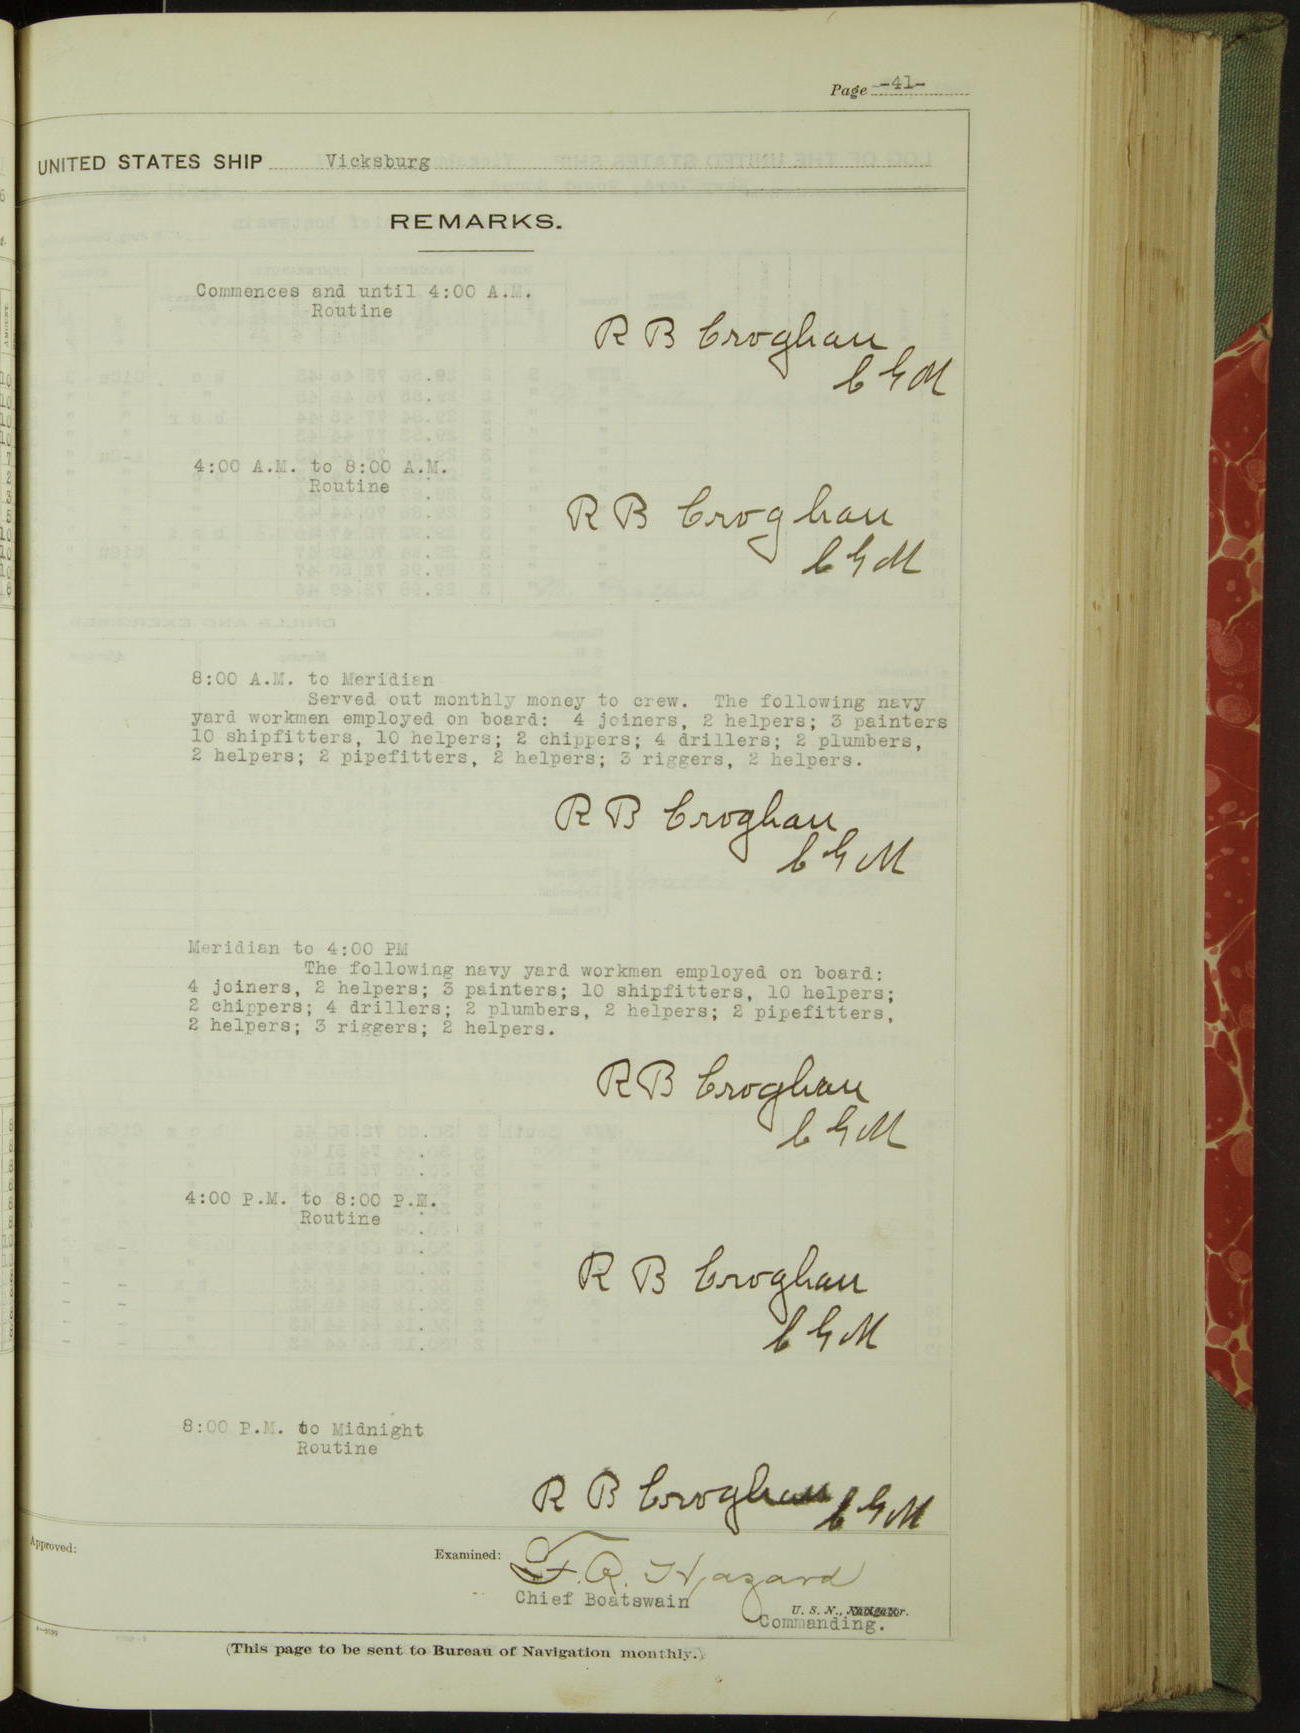 Page -41-
UNITED STATES SHIP Vicksburg
REMARKS.
Commences and until 4:00 A.M.
Routine
R B Croghan
C G M
4:00 A.M. to 8:00 A.M.
Routine
R B Croghan
C G M
8:00 A.M. to Meridian
Served out monthly money to crew. The following navy
yard workmen employed on board: 4 joiners, 2 helpers; 3 painters
10 shipfitters, 10 helpers; 2 chippers; 4 drillers; 2 plumbers,
2 helpers; 2 pipefitters, 2 helpers; 3 riggers, 2 helpers.
R B Croghan
C G M
Meridian to 4:00 PM
The following navy yard workmen employed on board:
4 joiners, 2 helpers; 3 painters; 10 shipfitters, 10 helpers;
2 chippers; 4 drillers; 2 plumbers, 2 helpers; 2 pipefitters,
2 helpers; 3 riggers; 2 helpers.
R B Croghan
C G M
4:00 P.M. to 8:00 P.M.
Routine
R B Croghan
C G M
8:00 P.M. to Midnight
Routine
R B Croghan C G M
Approved:
Examined: F. R. Hazard
Chief Boatswain
U. S. N., Navigator.
Commanding.
(This page to be sent to Bureau of Navigation monthly.)